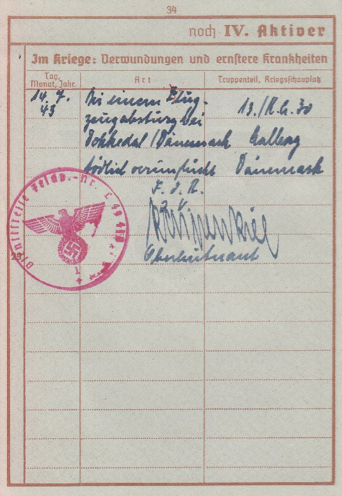 34
noch IV. Aktiver
Im Kriege: Verwundungen und ernstere Krankheiten
Tag, Monat, Jahr. Art Truppenteil, Kriegsschauplatz
14. 7. 43 Bei einem Flug- 13./K.G. 30
zeugabsturz bei
Dokkedal/Dänemark Aalborg
tödlich verunglückt Dänemark
F. d. R.
Oberleutnant
Dienststelle Feldp.-Nr.